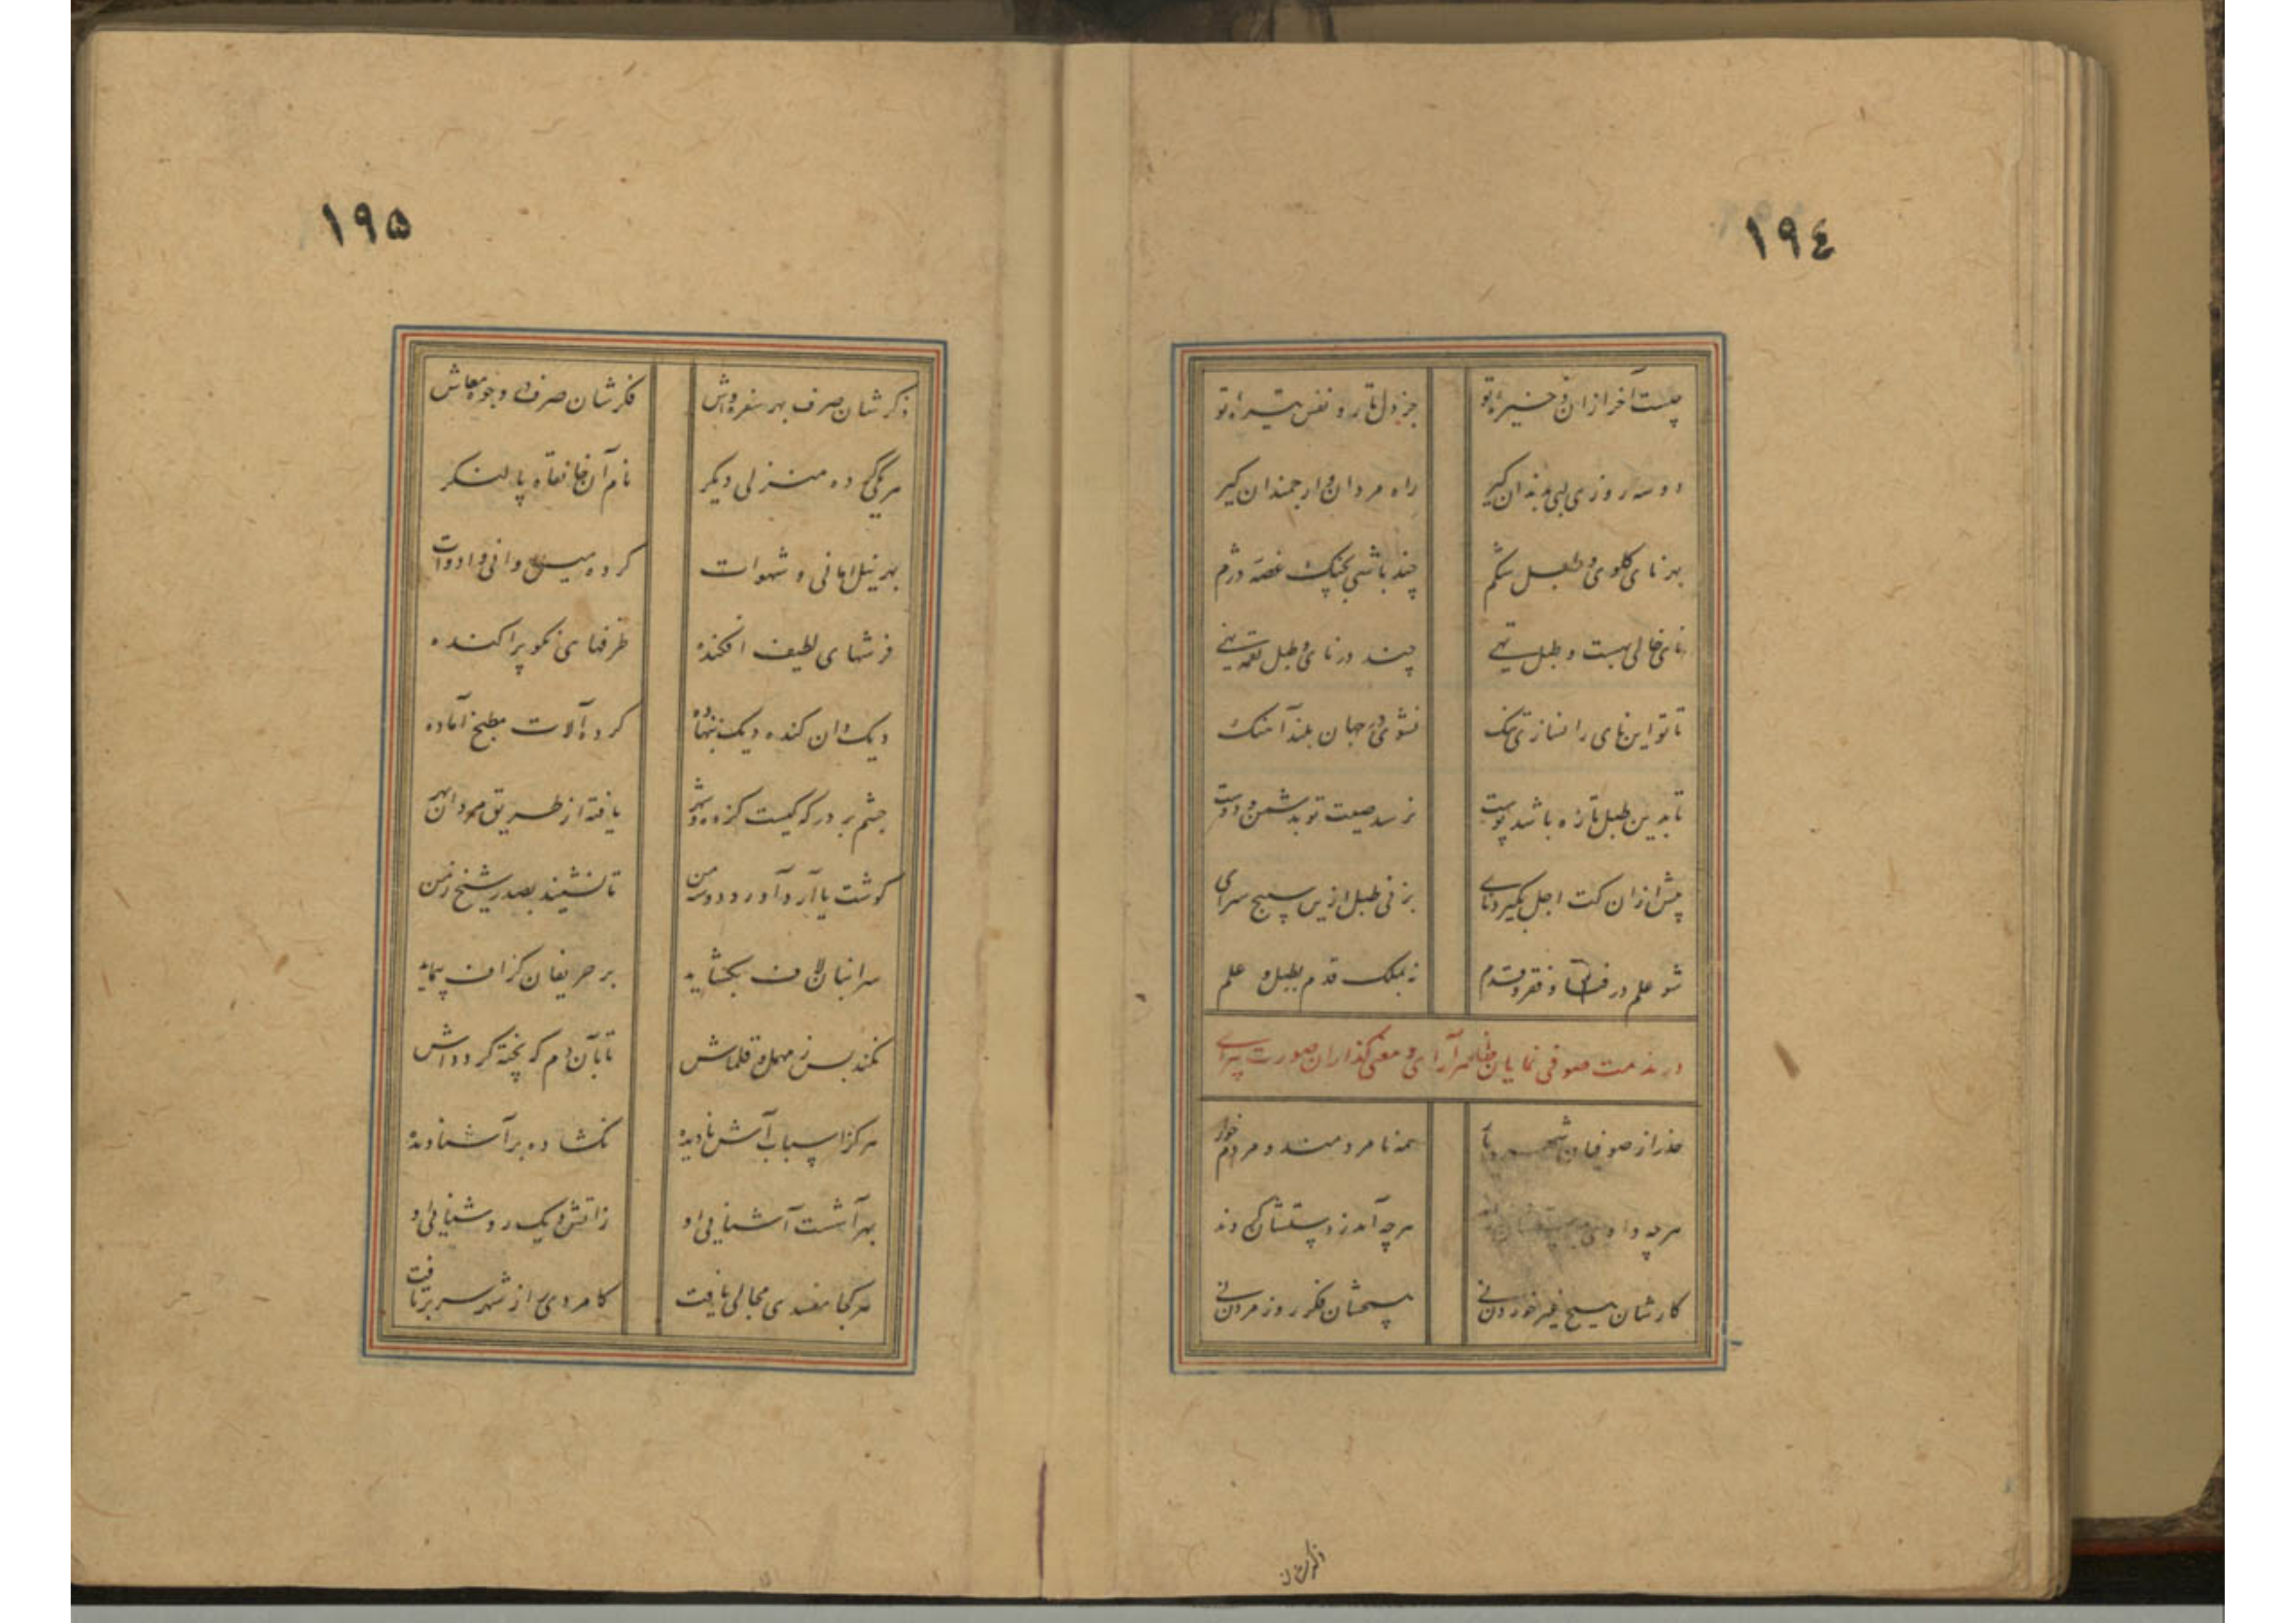 ١٩٤
چیست آخر از آن ذخیره تو جز دل تار و نفس تیره تو
دو سه روزی لبی بدندان گیر راه مردان و ارجمندان گیر
بهر نای گلوی و طبل شکم چند باشی بچنگ غصه درم
نای خالی بهست و طبل تهی چند در نای و طبل لقمه نهی
تا تو این نای را نسازی تنگ نشوی در جهان بلند آهنگ
تا بدین طبل تازه باشد پوست نرسد صیت تو بدشمن و دوست
پیش از آن کت اجل بگیرد نای بزنی طبل ازین سپنج سرای
شو علم در فنا و فقر و قدم نه بملک قدم بطبل و علم
در مذمت صوفی نمایان ظاهر آرای و معنی گذاران صورت پیرای
حذر از صوفیان شهر و دیار همه نامردمند و مردم خوار
هرچه دادی بدستشان خوردند هرچه آمد ز دستشان کردند
کارشان هیچ غیر خوردن نی هیچشان فکر روز مردن نی
ذکرشان
١٩٥
ذکرشان صرف بهر سفره و آش فکرشان صرف در وجوه معاش
هر یکی کرده منزلی دیگر نام آن خانقاه یا لنگر
بهر نیل امانی و شهوات کرده میل اوانی و ادوات
فرشهای لطیف افکنده ظرفهای نکو پراکنده
دیگدان کنده دیگ بنهاده کرده آلات مطبخ آماده
چشم بر در که کیست کز ره شهر یافته از طریق مردان بهر
گوشت یا آرد آورد دو سه من تا نشیند بصدر شیخ زمن
سر انبان لاف بگشاید بر حریفان گزاف پیماید
نکند بس ز مهمل و قلماش تا بآن دم که پخته گردد آش
هرکز اسباب آش نادیده نگشاده بر آشنا دیده
بهر آشت آشنایی او ز آتش دیگ روشنایی او
هر کجا مفسدی مجالی یافت کامردی را ز شهر سر برتافت